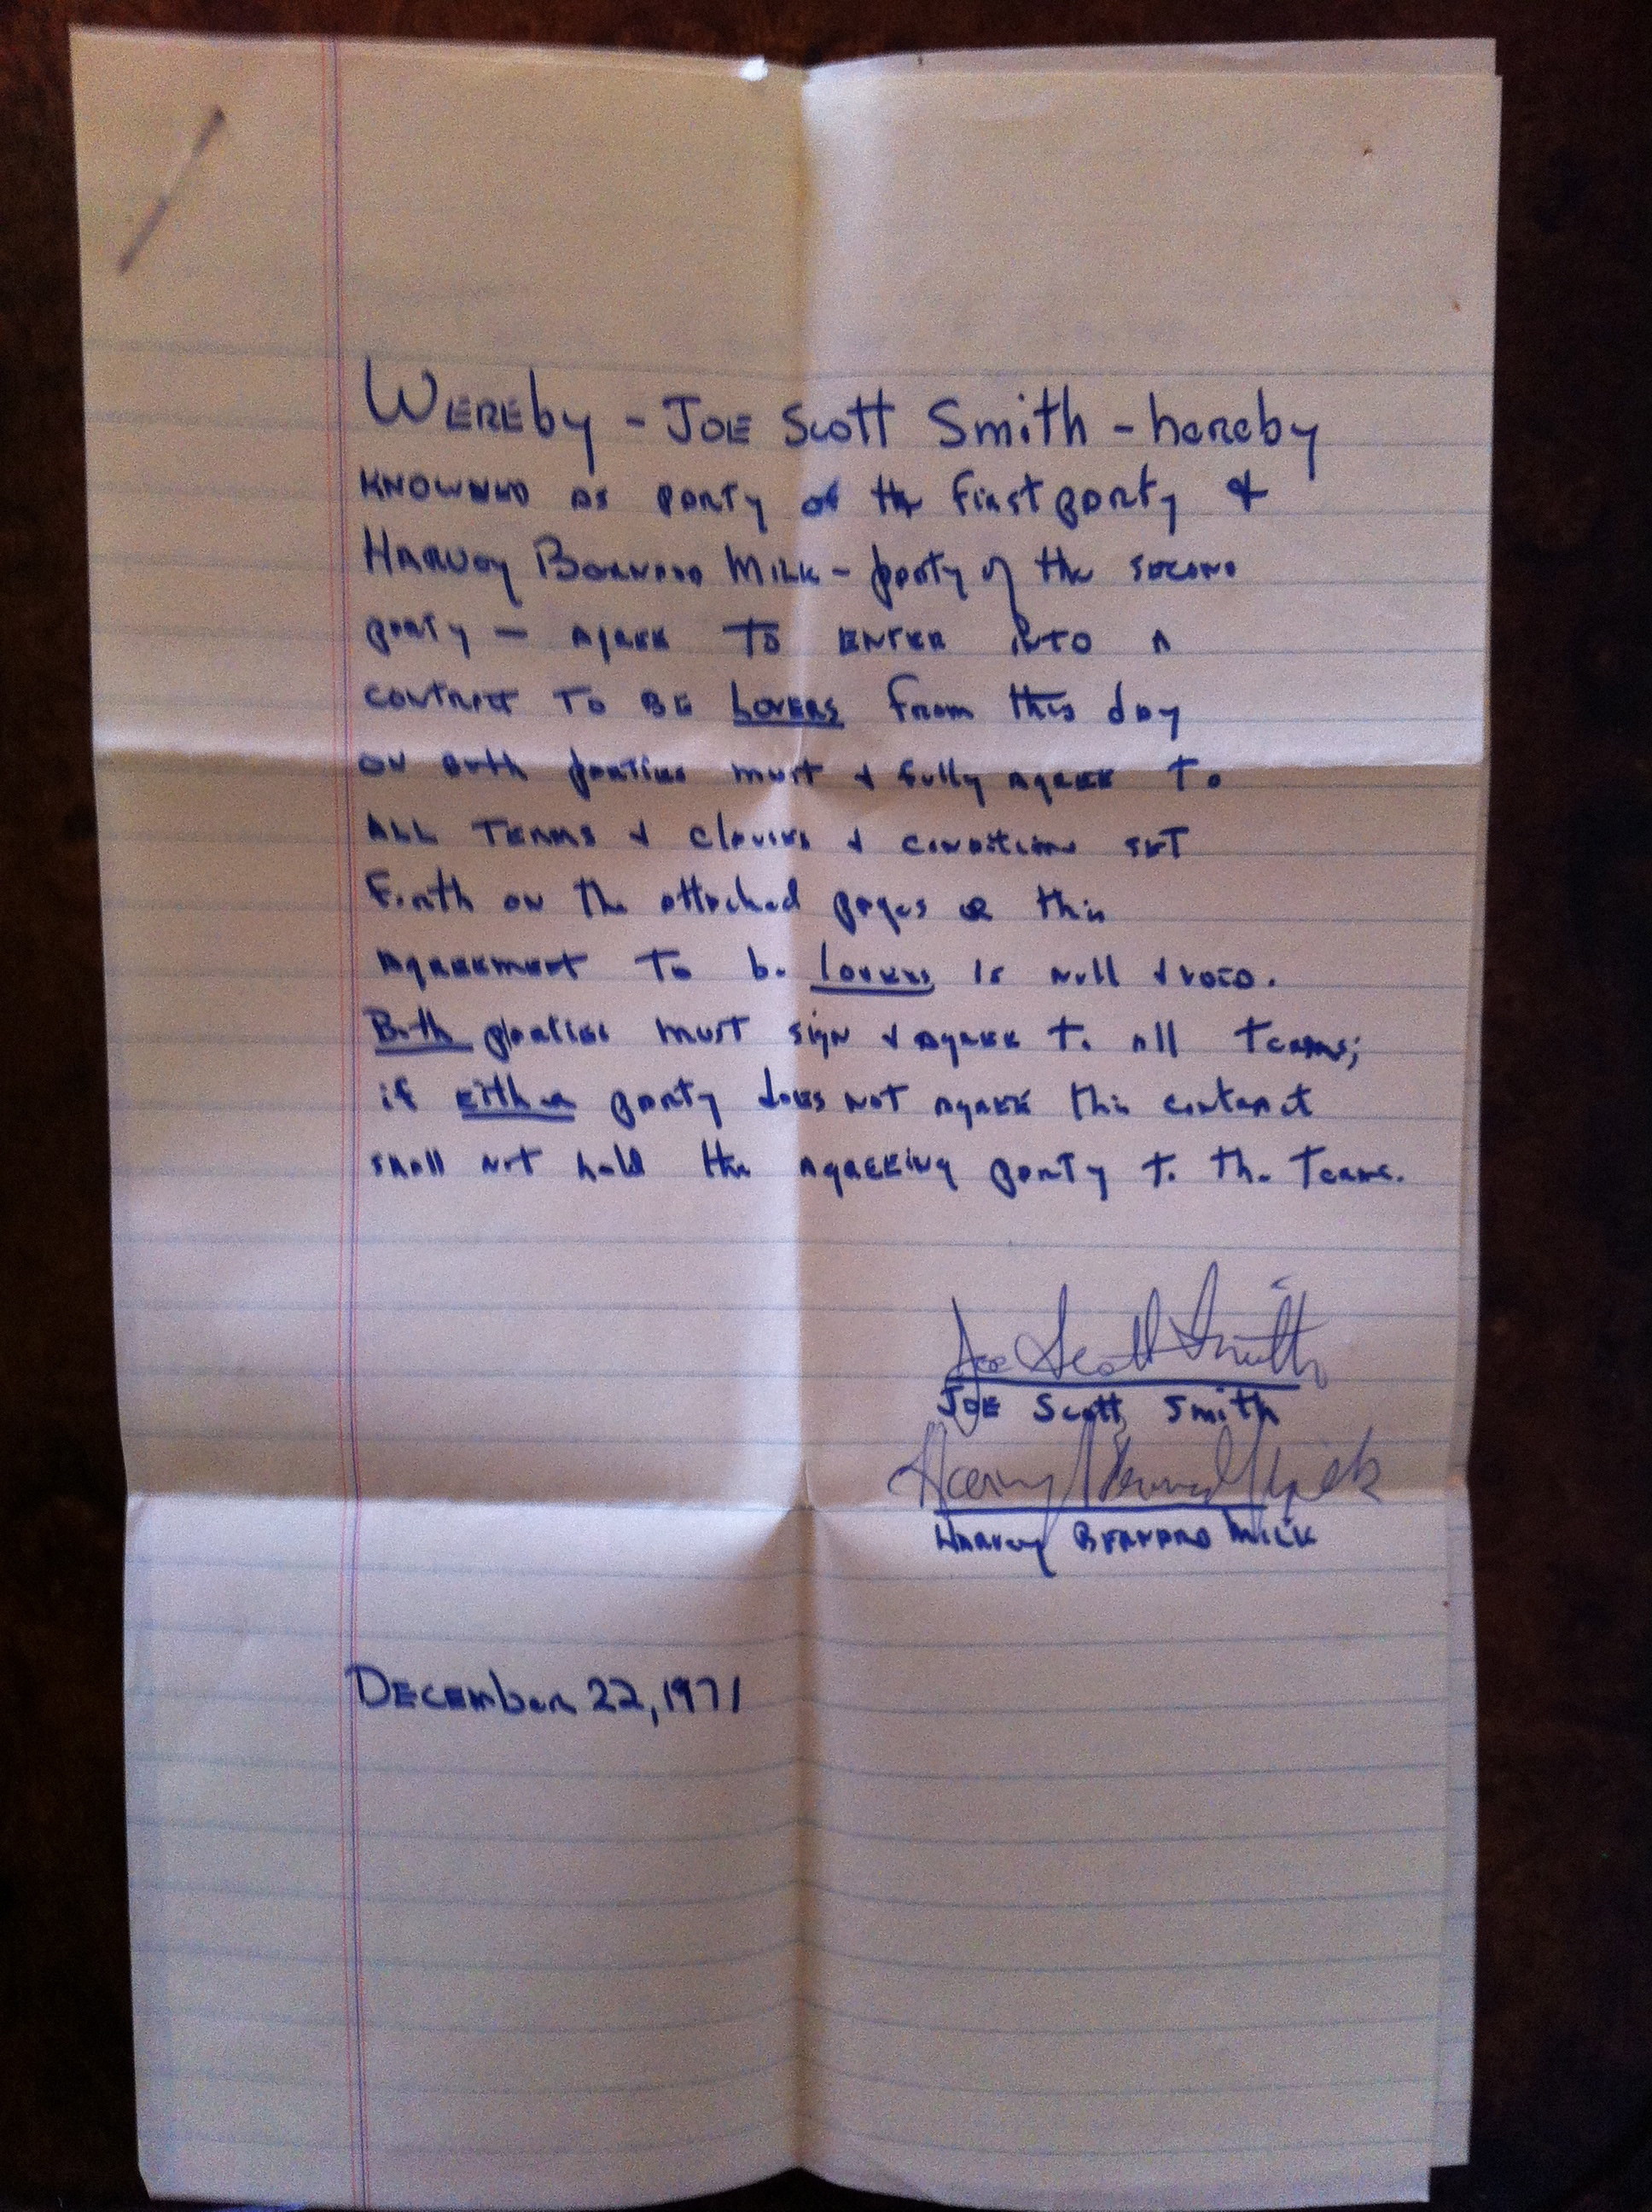 WEREby - JOE Scott Smith - hereby
KNOWNED AS PARTY of the first party &
HARVey BERNARD MILK - party of the SECOND
party — AGREE TO ENTER INTO A
CONTRACT TO BE LOVERS from this day
ON both parties must & fully AGREE To
ALL TERMS & clauses & CONDITIONS SET
Forth on the attached pages or this
AgREEMENT To be lovers Is Null & VOID.
Both parties must sign & AgREE to all terms;
if either party does not AgREE this contract
shall not hold the AgREEING party to the terms.
Joe Scott Smith
JOE Scott Smith
Harvey Bernard Milk
HARVey BERNARD MILK
DECEMber 22, 1971